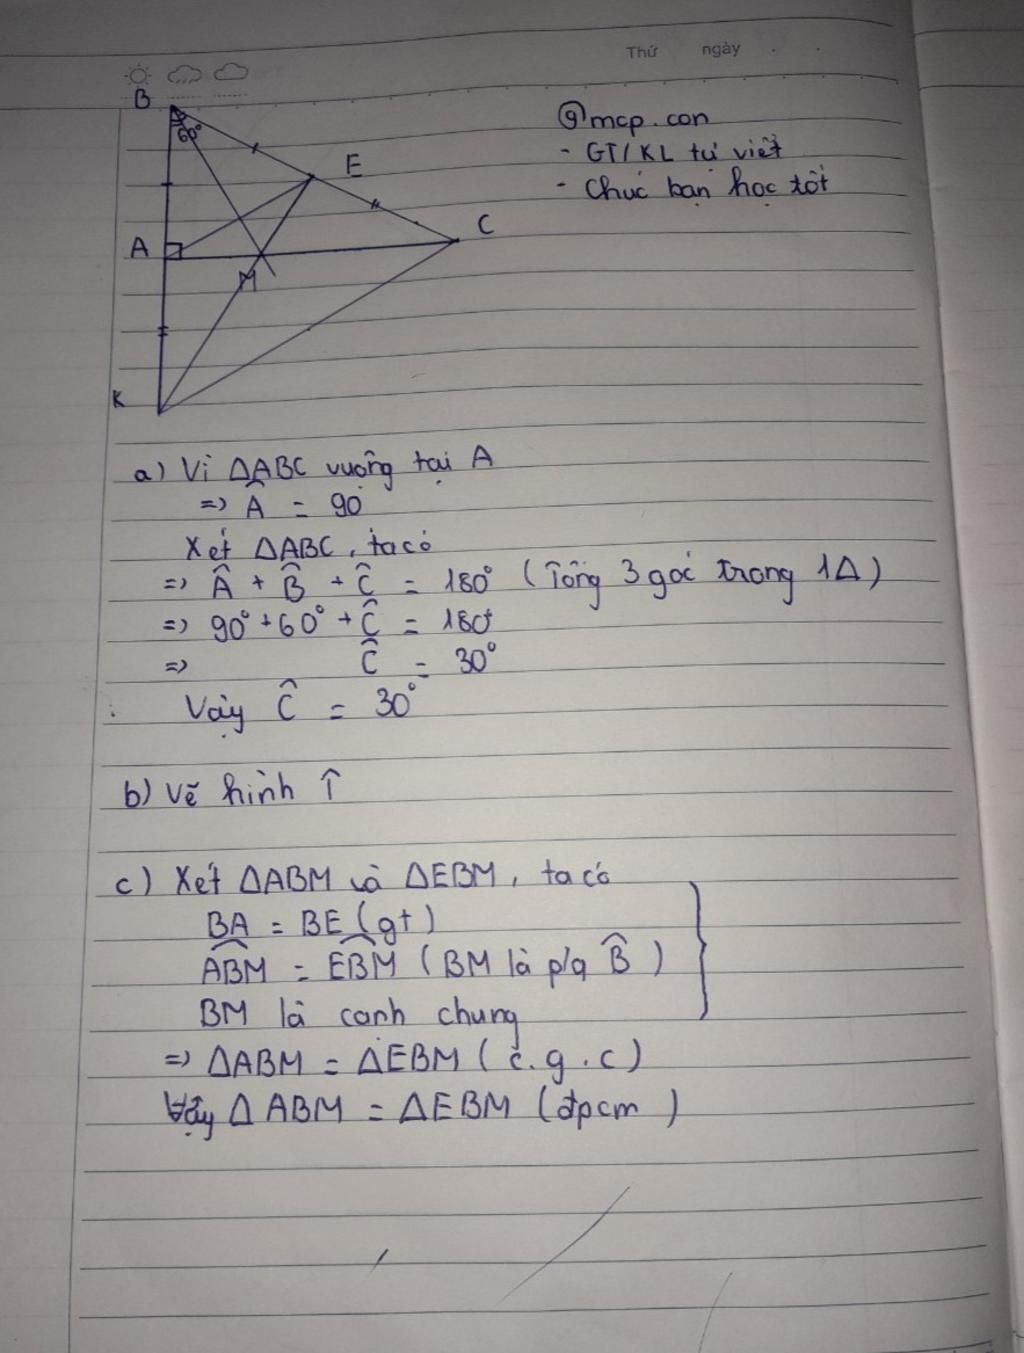 Thứ ngày
B
60°
E
C
A
M
K
@mcp.con
- GT/KL tự viết
- Chúc bạn học tốt
a) Vì ΔABC vuông tại A
=> Â = 90°
Xét ΔABC, ta có
=> Â + B̂ + Ĉ = 180° (Tổng 3 góc trong 1Δ)
=> 90° + 60° + Ĉ = 180°
=> Ĉ = 30°
Vậy Ĉ = 30°
b) Vẽ hình ↑
c) Xét ΔABM và ΔEBM, ta có
BA = BE (gt)
ABM = EBM (BM là p/g B̂)
BM là cạnh chung
=> ΔABM = ΔEBM (c.g.c)
Vậy ΔABM = ΔEBM (đpcm)